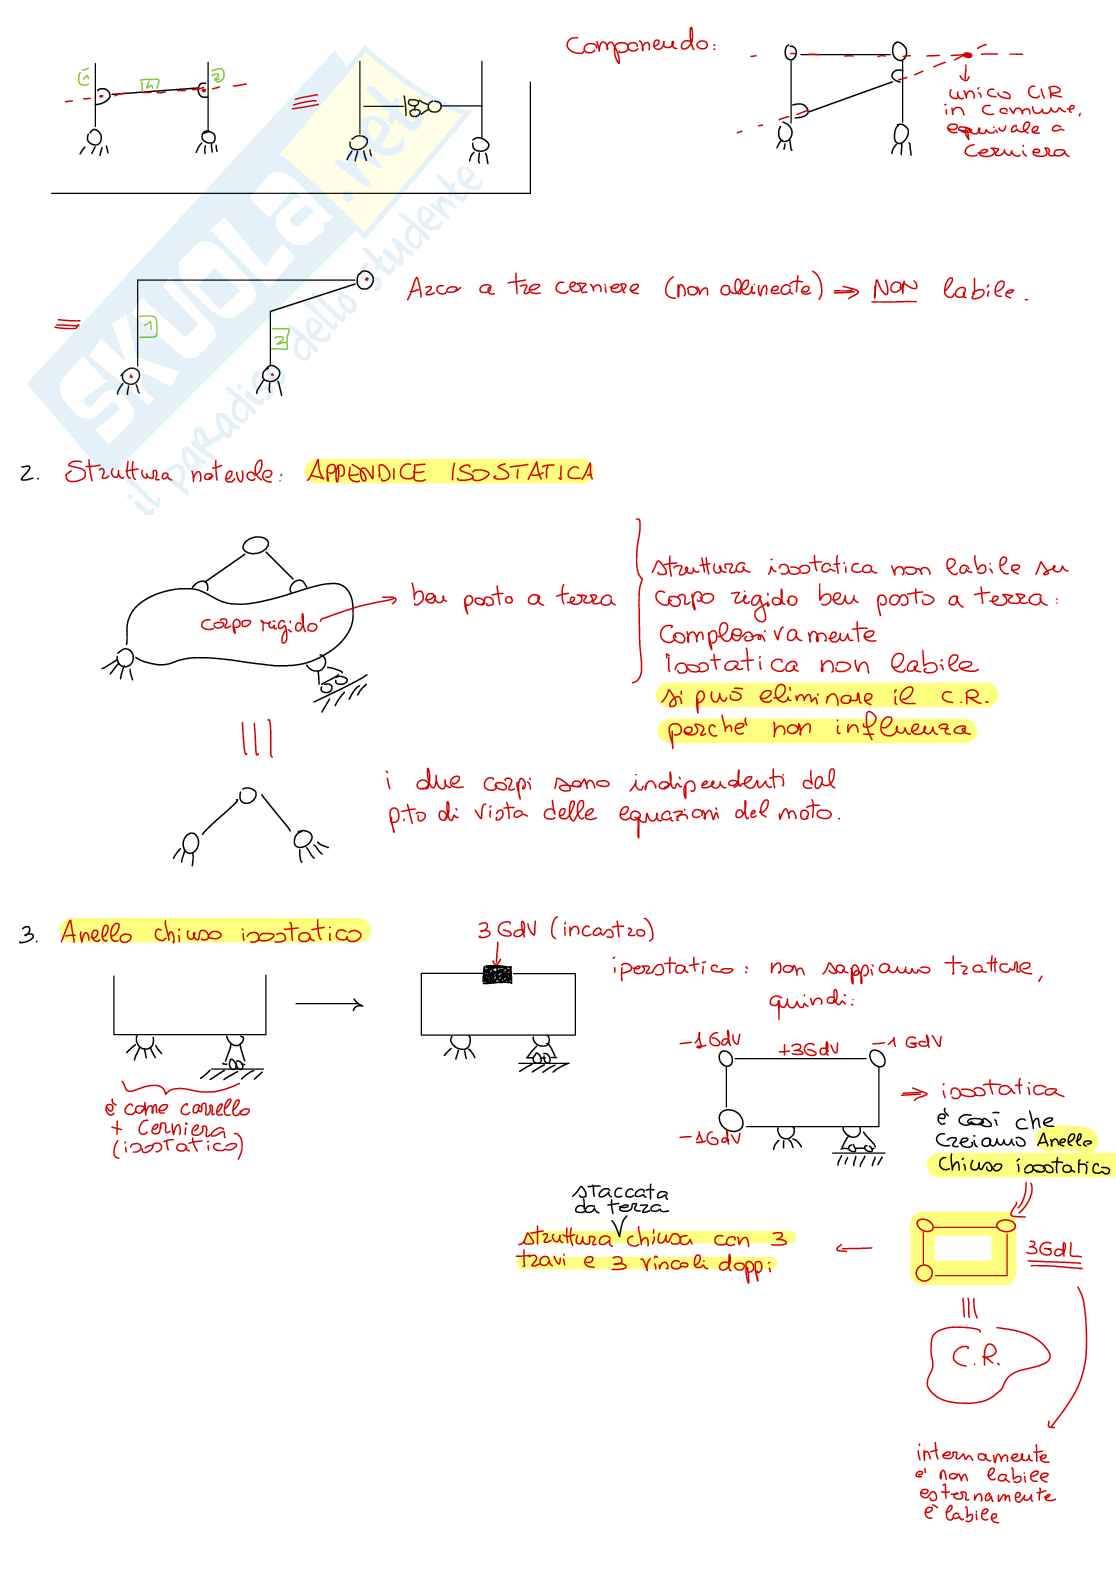 Componendo:
1
4
2
unico CIR
in comune,
equivale a
cerniera
SKUOLA.net
il paradiso dello studente
Arco a tre cerniere (non allineate) ⇒ NON labile.
1
2
2. Struttura notevole: APPENDICE ISOSTATICA
corpo rigido
ben posto a terra
struttura isostatica non labile su
corpo rigido ben posto a terra:
complessivamente
isostatica non labile
si può eliminare il C.R.
perche' non influenza
i due corpi sono indipendenti dal
p.to di vista delle equazioni del moto.
3. Anello chiuso isostatico
3 GdV (incastro)
iperstatico: non sappiamo trattare,
quindi:
-1GdV
+3GdV
-1 GdV
-1GdV
è come carrello
+ cerniera
(isostatico)
⇒ isostatica
è così che
creiamo Anello
chiuso isostatico
staccata
da terra
struttura chiusa con 3
travi e 3 vincoli doppi
3GdL
C.R.
internamente
e' non labile
esternamente
è labile